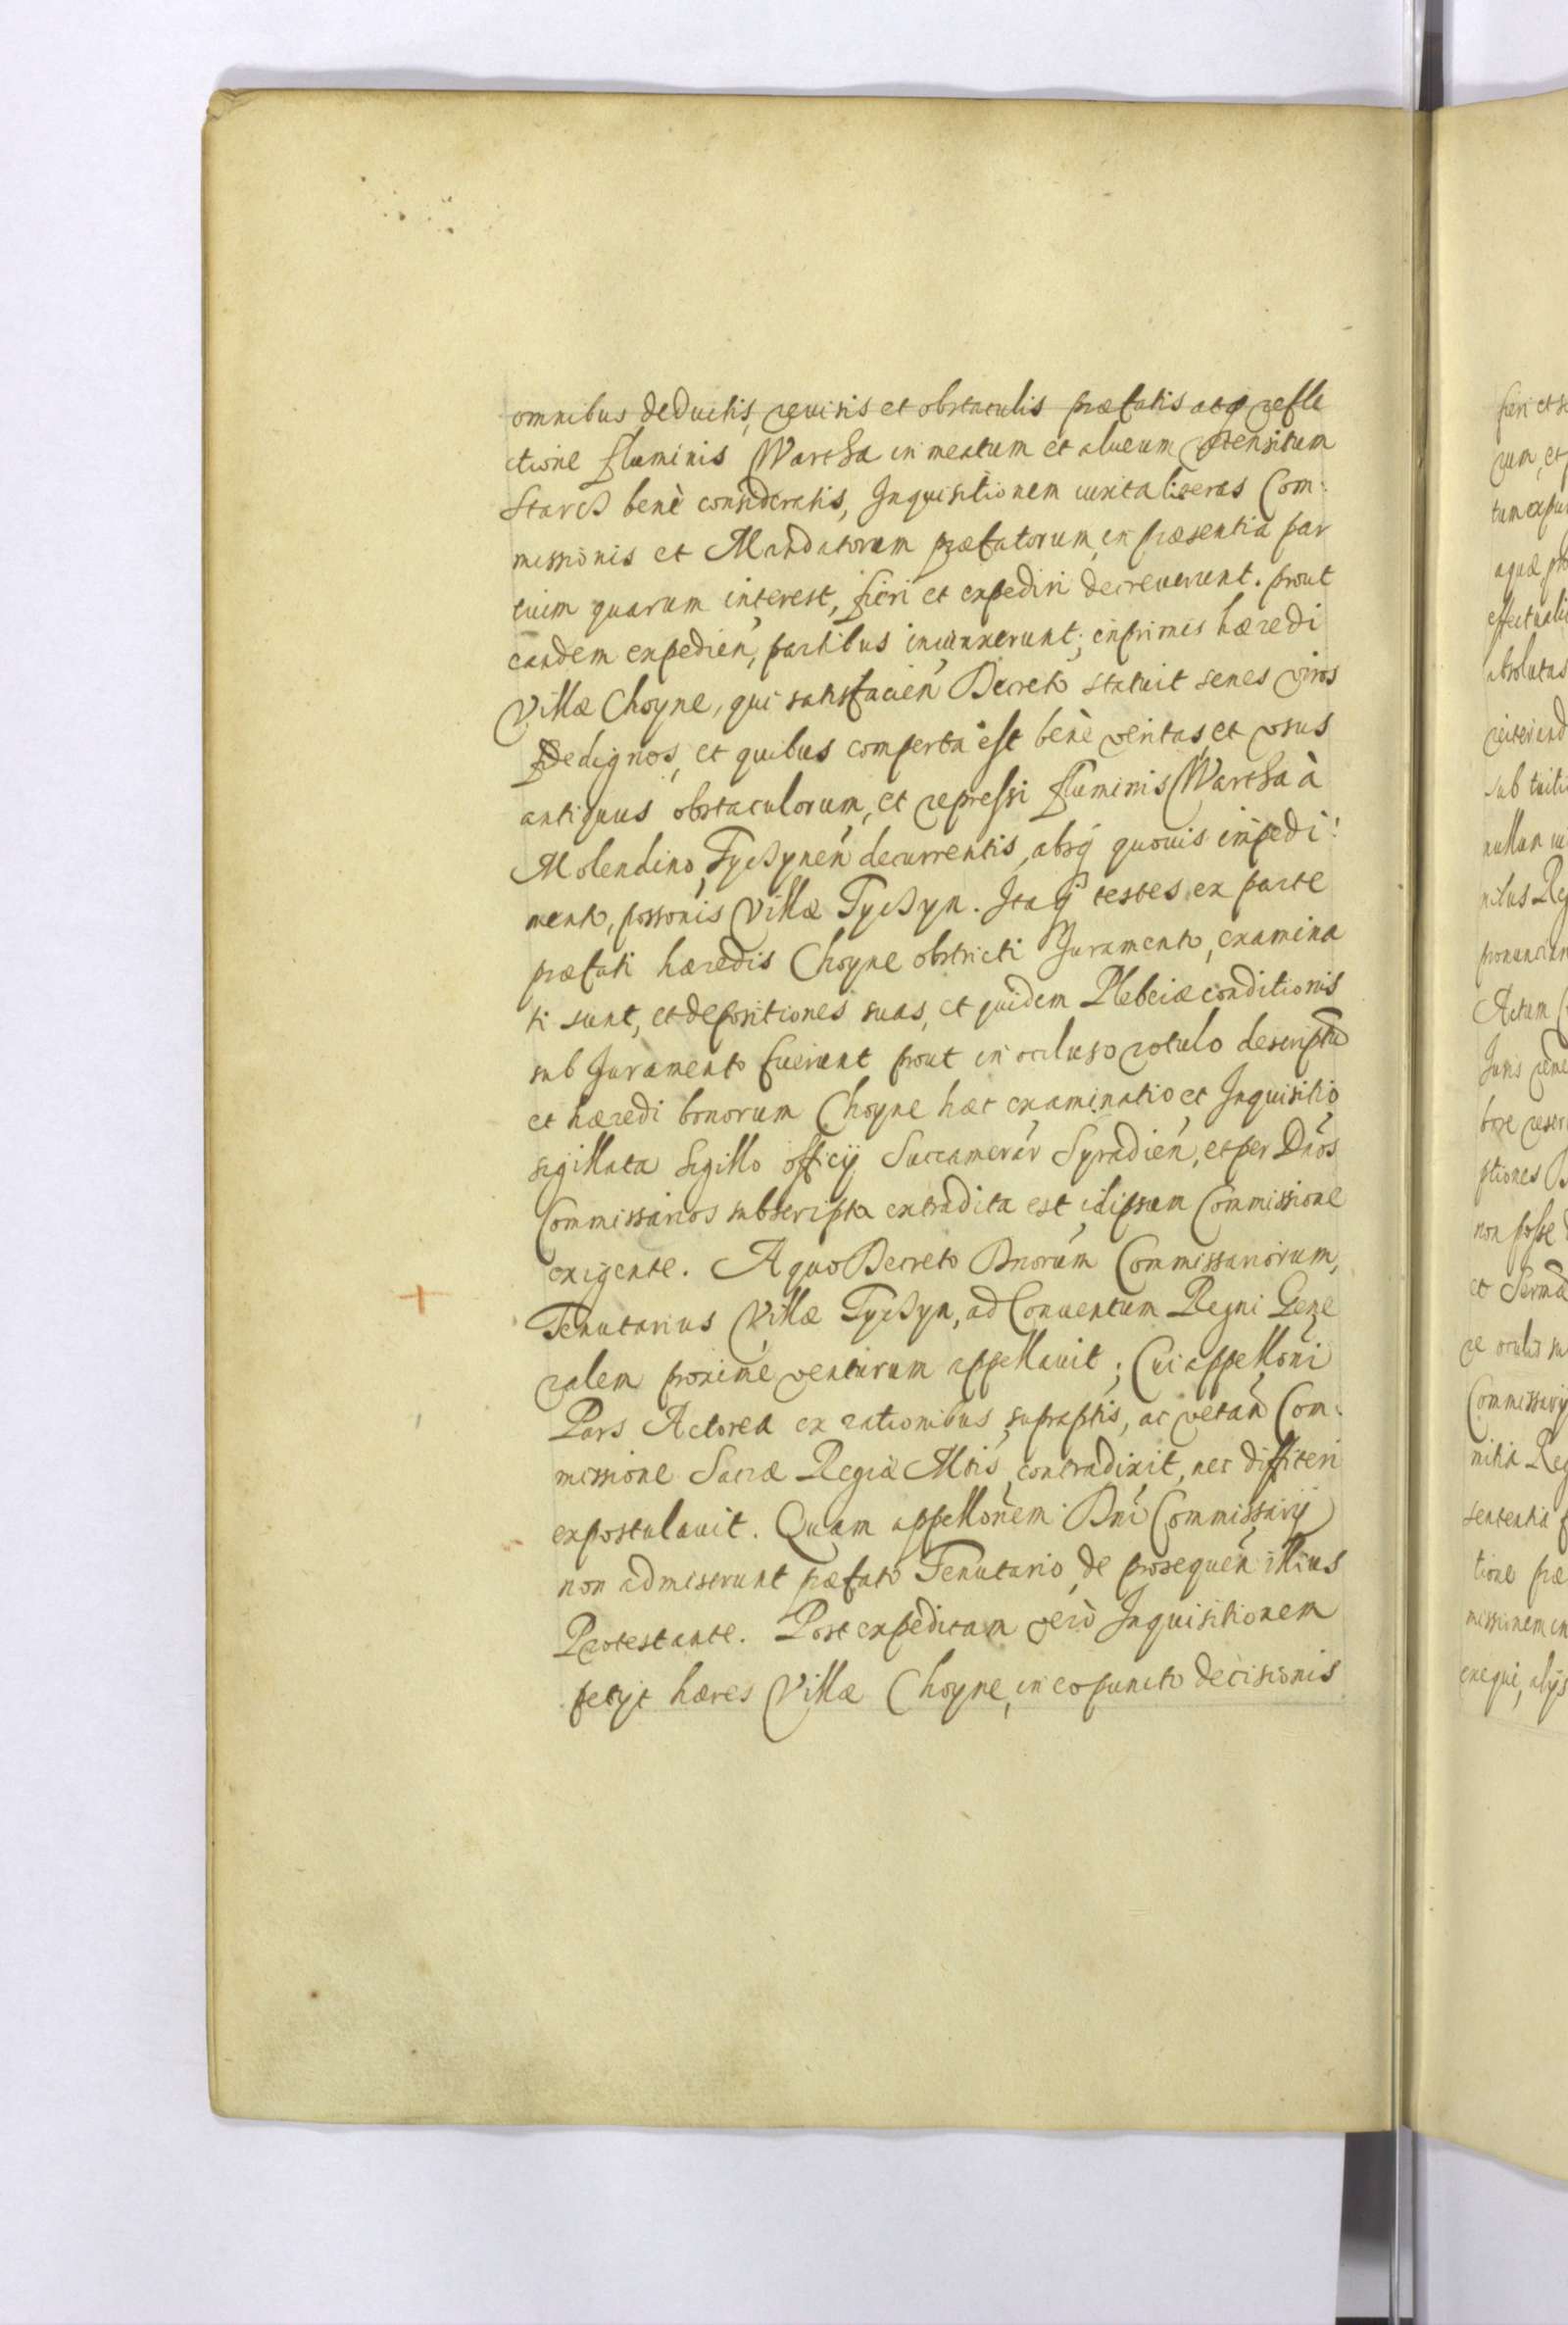 omnibus deductis, reuisis et obstaculis præfatis atq refle
ctione fluminis Wartha in meatum et alueum
bene consideratis, Inquisitionem iuxta literas Com:
missionis et Mandatorum præfatorum, in præsentia par
tium quarum interest, fieri et expediri decreuerunt. prout
eandem expedien, partibus iniunxerunt; inprimis hæredi
Villæ Choyne, qui satisfacien Decreto statuit senes viros
fidedignos, et quibus comperta est bene veritas et vsus
antiquus obstaculorum, et repressi fluminis Wartha à
Molendino Tychynen decurrentis, absq quouis impedi:
mento, possonis Villæ Tychyn. Itaq testes ex parte
præfati hæredis Choyne obstricti Juramento, examina
ti sunt, et depositiones suas, et quidem Plebeiæ conditionis
sub Juramento fuerunt prout in ocluso rotulo descriptũ
et hæredi bonorum Choyne hæc examinatio et Inquisitio
sigillata Sigillo officij Succamerar Syradien, et per Dnos
Commissarios subscripta extradita est idipsum Commissione
exigente. A quo Decreto Dnorum Commissariorum,
Tenutarius Villæ Tychyn, ad Conuentum Regni Gene
ralem proxime venturum appellauit; Cui appellõni
Pars Actorea ex rationibus supraptis, ac vetan Com:
missione Sacræ Regiæ Mtis contradixit, nec differi
expostulauit. Quam appellonem Dni Commissarij
non admiserunt præfato Tenutario de prosequen illius
Protestante. Post expeditam verò Inquisitionem
petijt hæres Villæ Choyne, in eo puncto decisionis